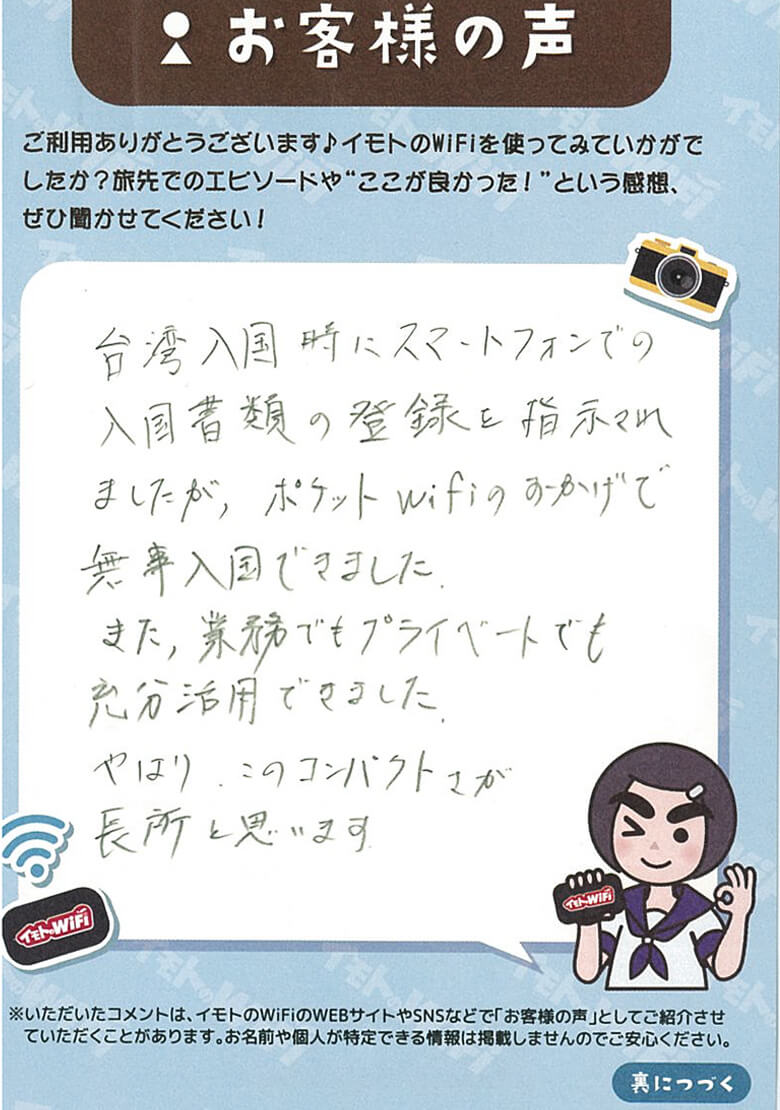 お客様の声
ご利用ありがとうございます♪イモトのWiFiを使ってみていかがで
したか？旅先でのエピソードや“ここが良かった！”という感想、
ぜひ聞かせてください！
台湾入国時にスマートフォンでの
入国書類の登録を指示され
ましたが, ポケットwifiのおかげで
無事入国できました.
また, 業務でもプライベートでも
充分活用できました.
やはり.このコンパクトさが
長所と思います
イモトのWiFi
イモトのWiFi
※いただいたコメントは、イモトのWiFiのWEBサイトやSNSなどで「お客様の声」としてご紹介させ
ていただくことがあります。お名前や個人が特定できる情報は掲載しませんのでご安心ください。
裏につづく